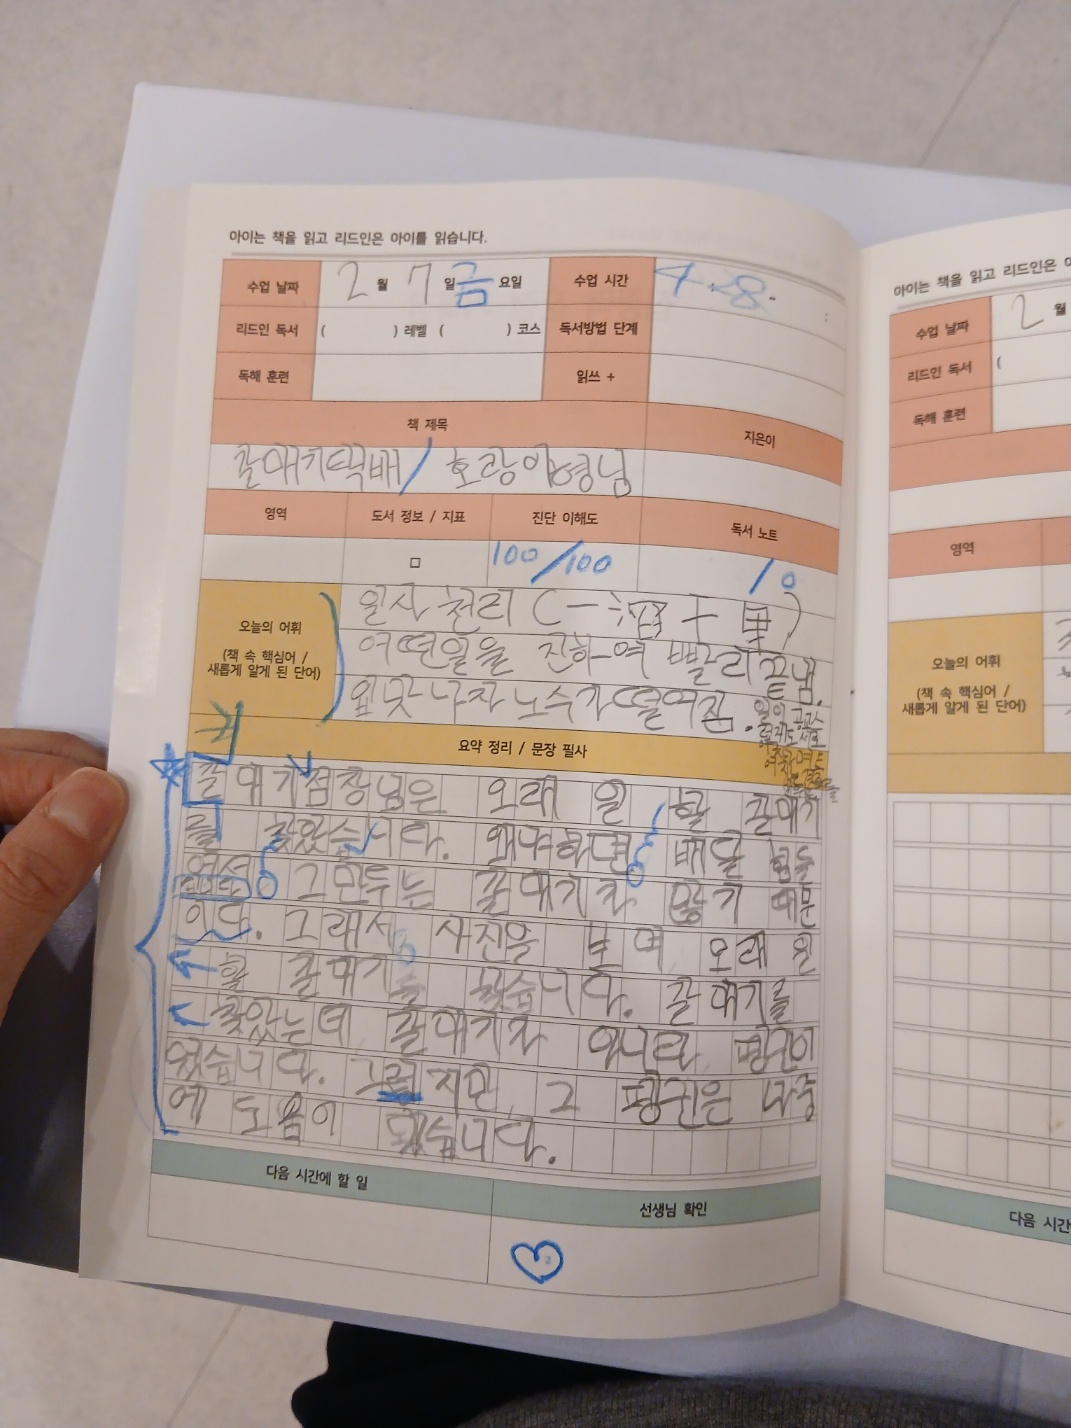 아이는 책을 읽고 리드인은 아이를 읽습니다.
수업 날짜 2 월 7 일 금 요일 수업 시간 7 ~8 :
리드인 독서 ( ) 레벨 ( ) 코스 독서방법 단계
독해 훈련 읽쓰 +
책 제목 지은이
갈매기택배 / 호랑이형님
영역 도서 정보 / 지표 진단 이해도 독서 노트
□ 100/100 10
오늘의 어휘
(책 속 핵심어 /
새롭게 알게 된 단어)
일사천리 (一瀉千里)
어떤일을 진하여 빨리끝냄.
요약 정리 / 문장 필사
갈매기점장님은 오래 일 할 갈매기
를 찾았습니다. 왜냐하면 배달 힘들
그만두는 갈매기가 많기 때문
이다. 그래서 사진을 보여 오래 일
할 갈매기를 찾습니다. 갈매기를
찾았는데 갈매기가 아니라 펭귄이
었습니다. 그렇지만 그 펭귄은 나중
에 도움이 됐습니다.
다음 시간에 할 일 선생님 확인
아이는 책을 읽고 리드인은
수업 날짜 2 월
리드인 독서 (
독해 훈련
영역
오늘의 어휘
(책 속 핵심어 /
새롭게 알게 된 단어)
다음 시간